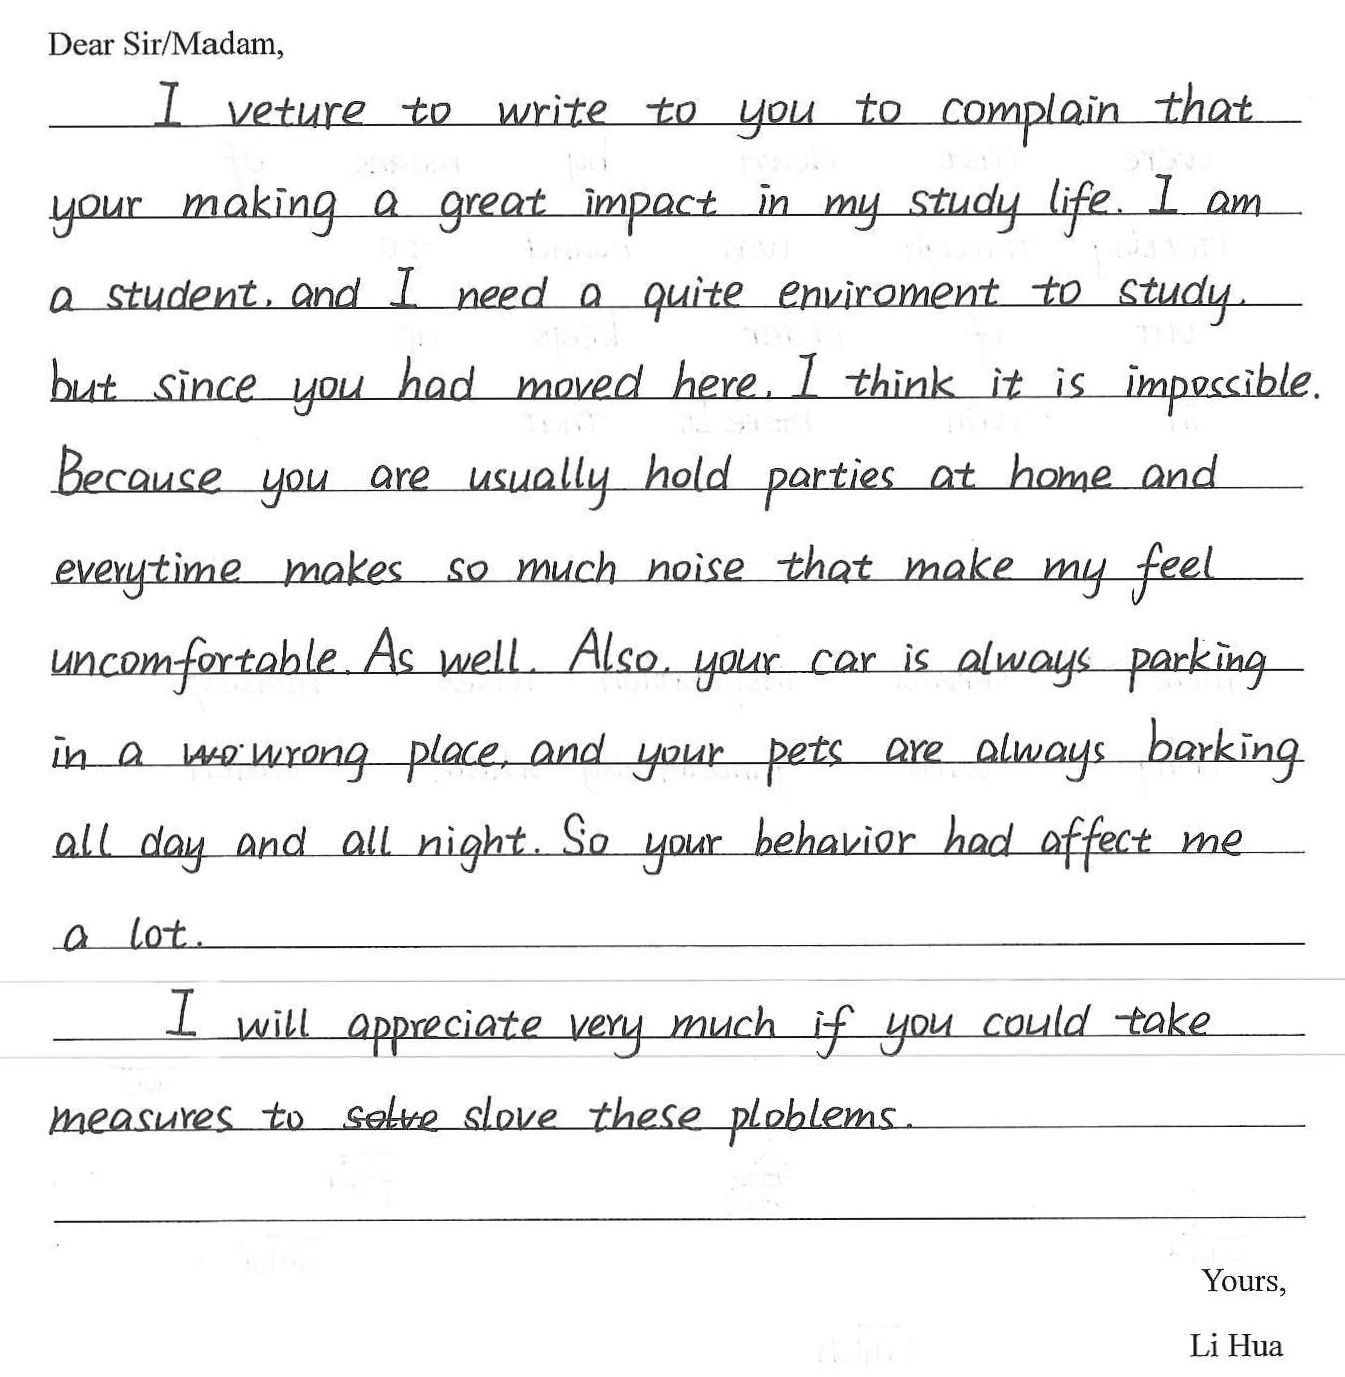 Dear Sir/Madam,
I veture to write to you to complain that
your making a great impact in my study life. I am
a student, and I need a quite enviroment to study,
but since you had moved here, I think it is impossible.
Because you are usually hold parties at home and
everytime makes so much noise that make my feel
uncomfortable. As well. Also, your car is always parking
in a wo wrong place, and your pets are always barking
all day and all night. So your behavior had affect me
a lot.
I will appreciate very much if you could take
measures to solve slove these ploblems.
Yours,
Li Hua